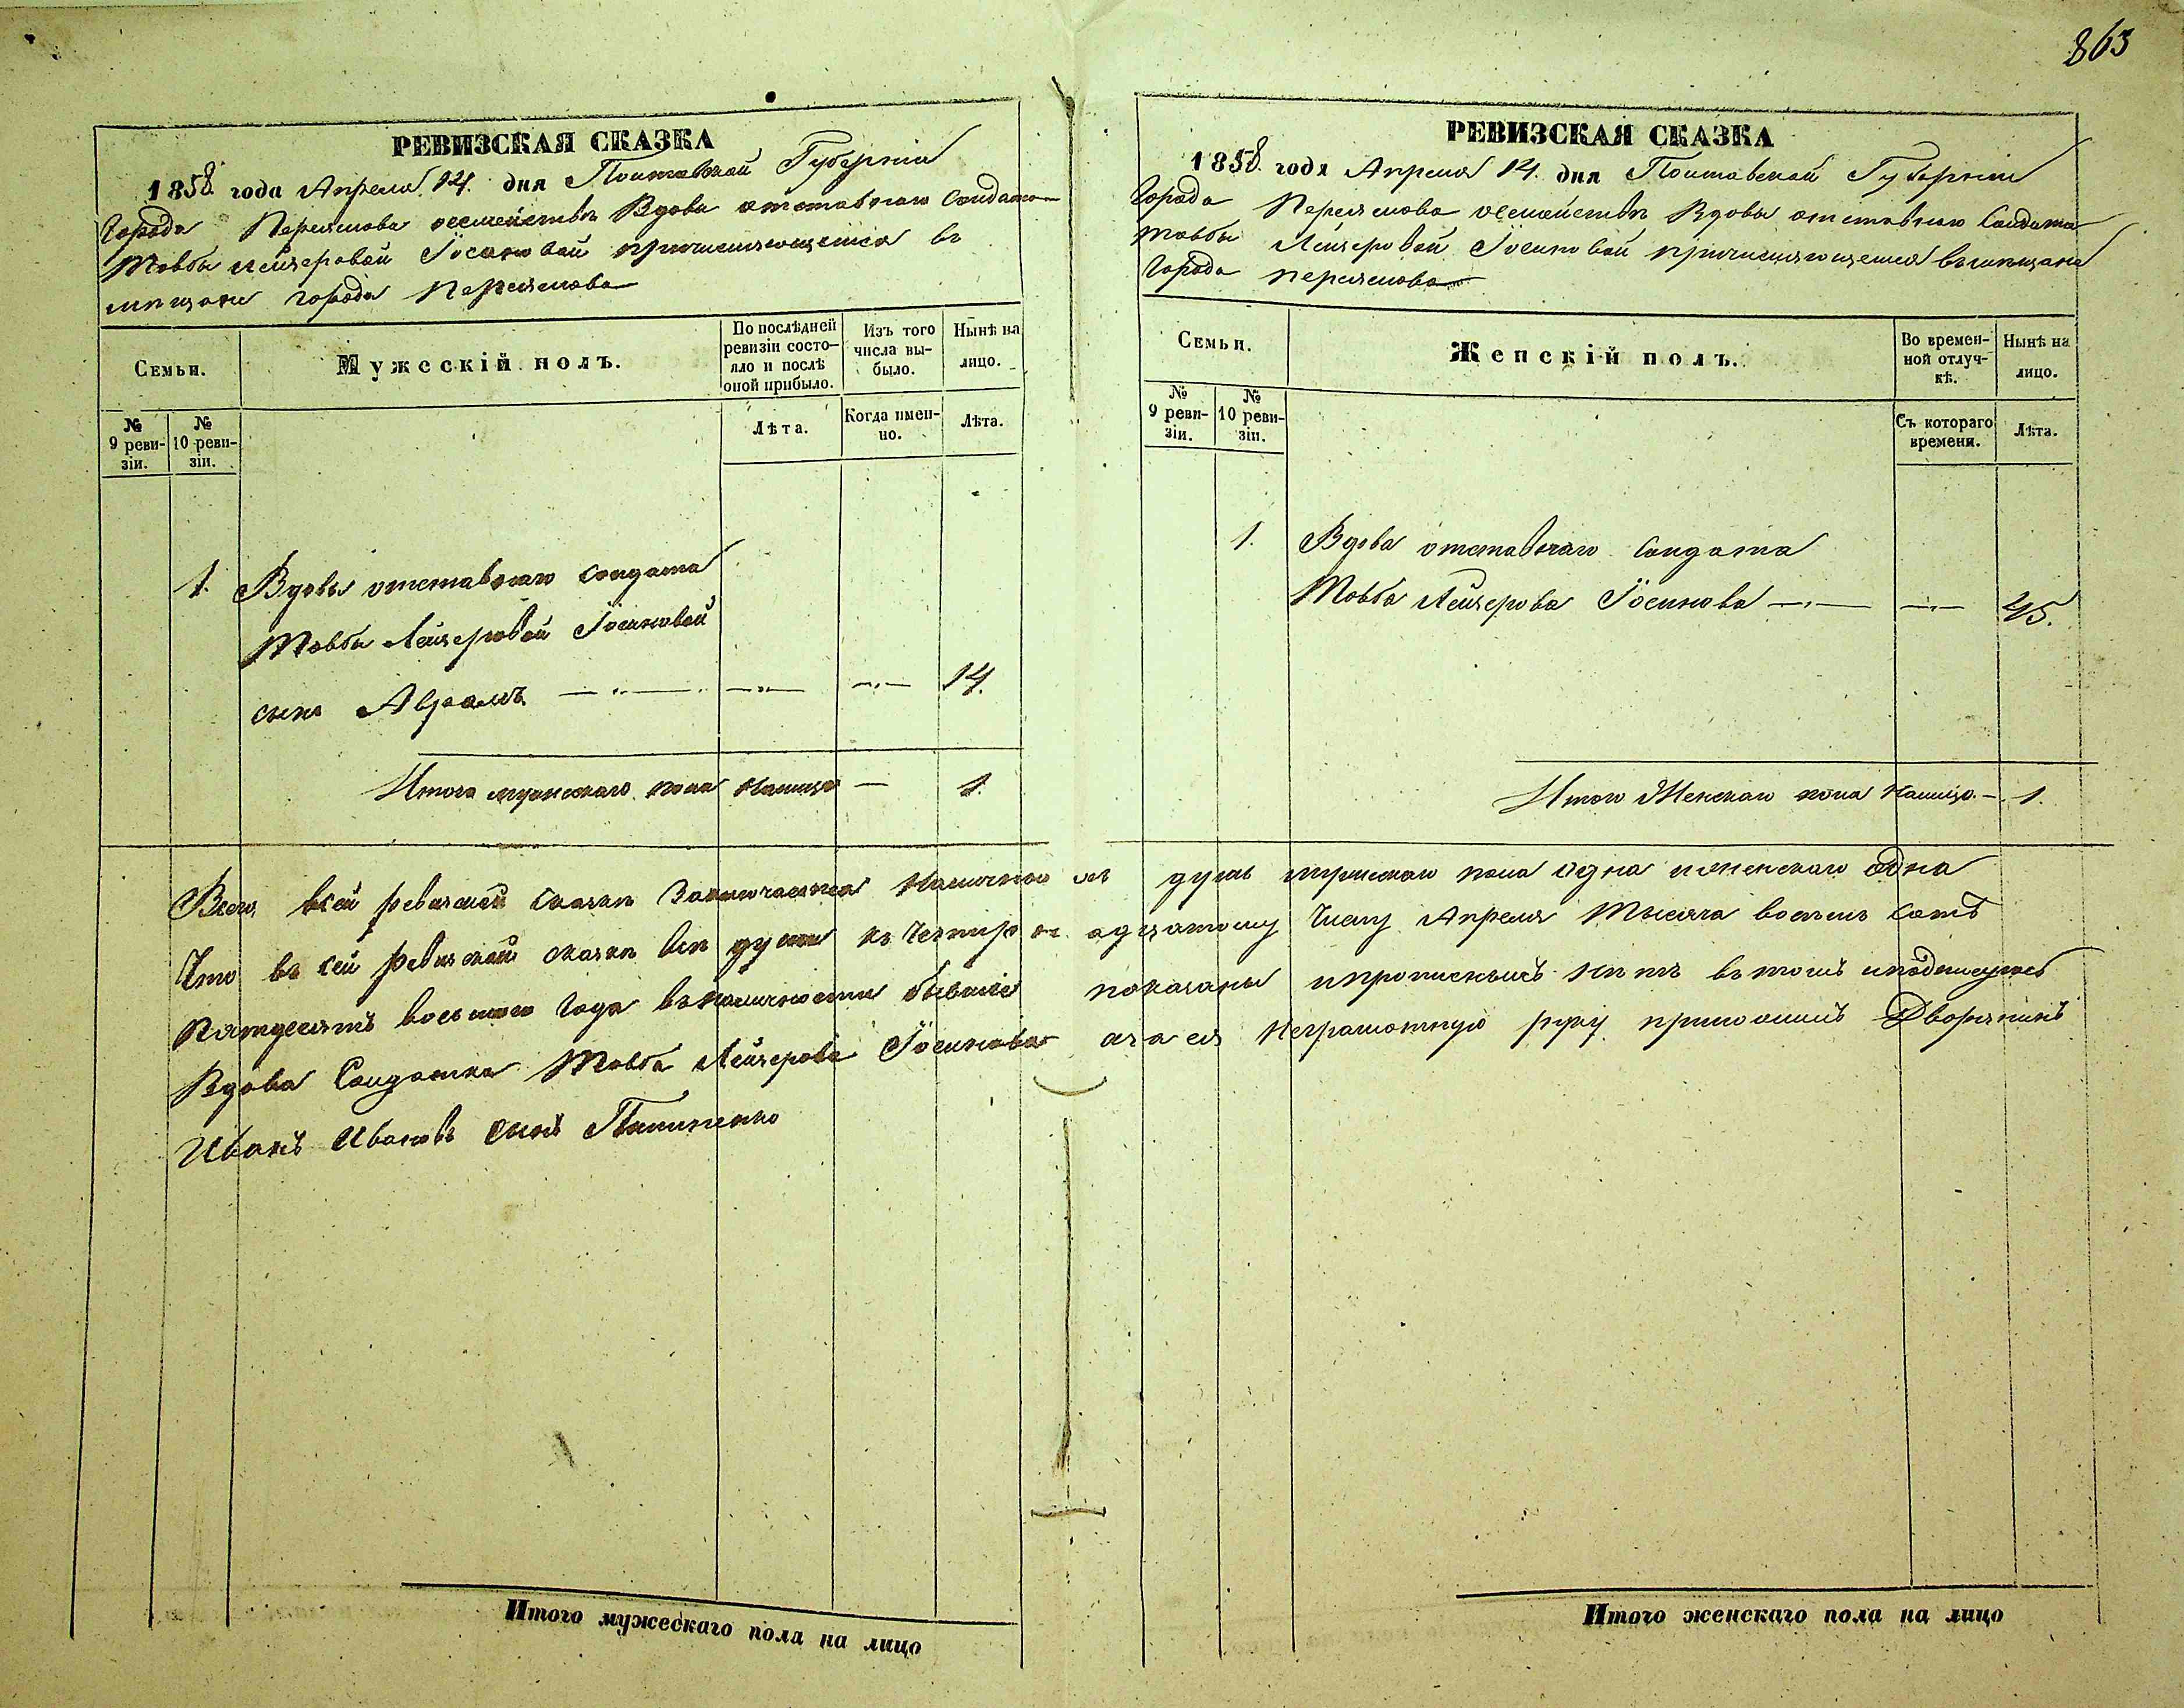 863
РЕВИЗСКАЯ СКАЗКА
1858 года Апреля 14. дня Полтавской Губернии
Города Переяслова осемействе Вдовы отставнаго Солдата
Товбы Лейзеровой Іосиновой причисляющейся въ
мещане города Переяслова
Семьи.
Мужескій полъ.
По послѣдней ревизіи состояло и послѣ оной прибыло.
Изъ того числа выбыло.
Нынѣ на лицо.
№ 9 ревизіи.
№ 10 ревизіи.
Лѣта.
Когда именно.
Лѣта.
1. Вдовы отставнаго солдата
Товбы Лейзеровой Іосиновой
сынъ Аврамъ 14.
Итого мужескаго пола налицо — 1
РЕВИЗСКАЯ СКАЗКА
1858 года Апреля 14. дня Полтавской Губернии
Города Переяслова осемействе Вдовы отставнаго Солдата
Товбы Лейзеровой Іосиновой причисляющейся въ мещане
Города Переяслова
Семьи.
Женскій полъ.
Во временной отлучкѣ.
Нынѣ на лицо.
№ 9 ревизіи.
№ 10 ревизіи.
Съ котораго времени.
Лѣта.
1. Вдова отставнаго солдата
Товба Лейзерова Іосинова 45.
Итого Женскаго пола налицо — 1.
Всего всей ревизской сказке Заключается наличныхъ душъ мужескаго пола одна и женскаго одна
Что въ сей ревизской сказке все души къ четирнадцатому числу Апреля Тысяча восемь сотъ
Пятдесятъ восьмого Года въ наличности бывшие показаны и прописныхъ нетъ въ томъ и подписуюсь
Вдова Солдатка Товба Лейзерова Іосинова а за ея неграмотную руку приложилъ Дворянинъ
Иванъ Ивановъ сынъ
Итого мужескаго пола на лицо
Итого женскаго пола на лицо